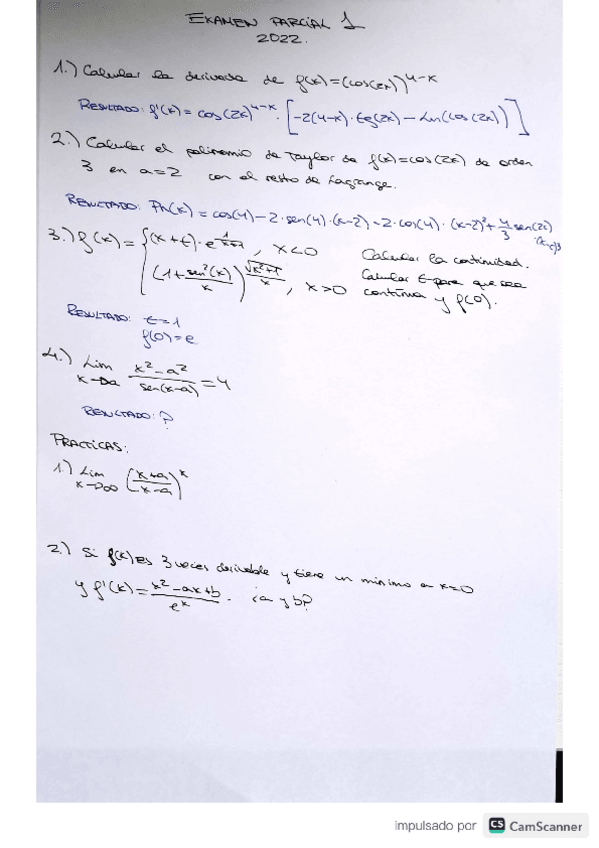 EXAMEN PARCIAL 1
2022.
1.) Calcular la derivada de f(x)=(cos(2x))^{4-x}
RESULTADO: f'(x)=cos(2x)^{4-x}·[-2(4-x)·tg(2x)-Ln(cos(2x))]
2.) Calcular el polinomio de Taylor de f(x)=cos(2x) de orden
3 en a=2 con el resto de Lagrange.
RESULTADO: Pn(x)=cos(4)-2·sen(4)·(x-2)-2·cos(4)·(x-2)²+4/3 sen(2)
3.) f(x)= {(x+t)·e^{1/(x+1)}, x<0 Calcular la continuidad.
(1+sen²(x)/x)^{√(x²+1)/x}, x>0 Calcular t para que sea
continua y f(0).
RESULTADO: t=1
f(0)=e
4.) Lim x→a (x²-a²)/sen(x-a)=4
RESULTADO: ?
PRACTICAS:
1.) Lim x→∞ ((x+a)/(x-a))^x
2.) Si f(x) es 3 veces derivable y tiene un minimo en x=0
y f'(x)=(x²-ax+b)/e^x. ¿a y b?
impulsado por CS CamScanner